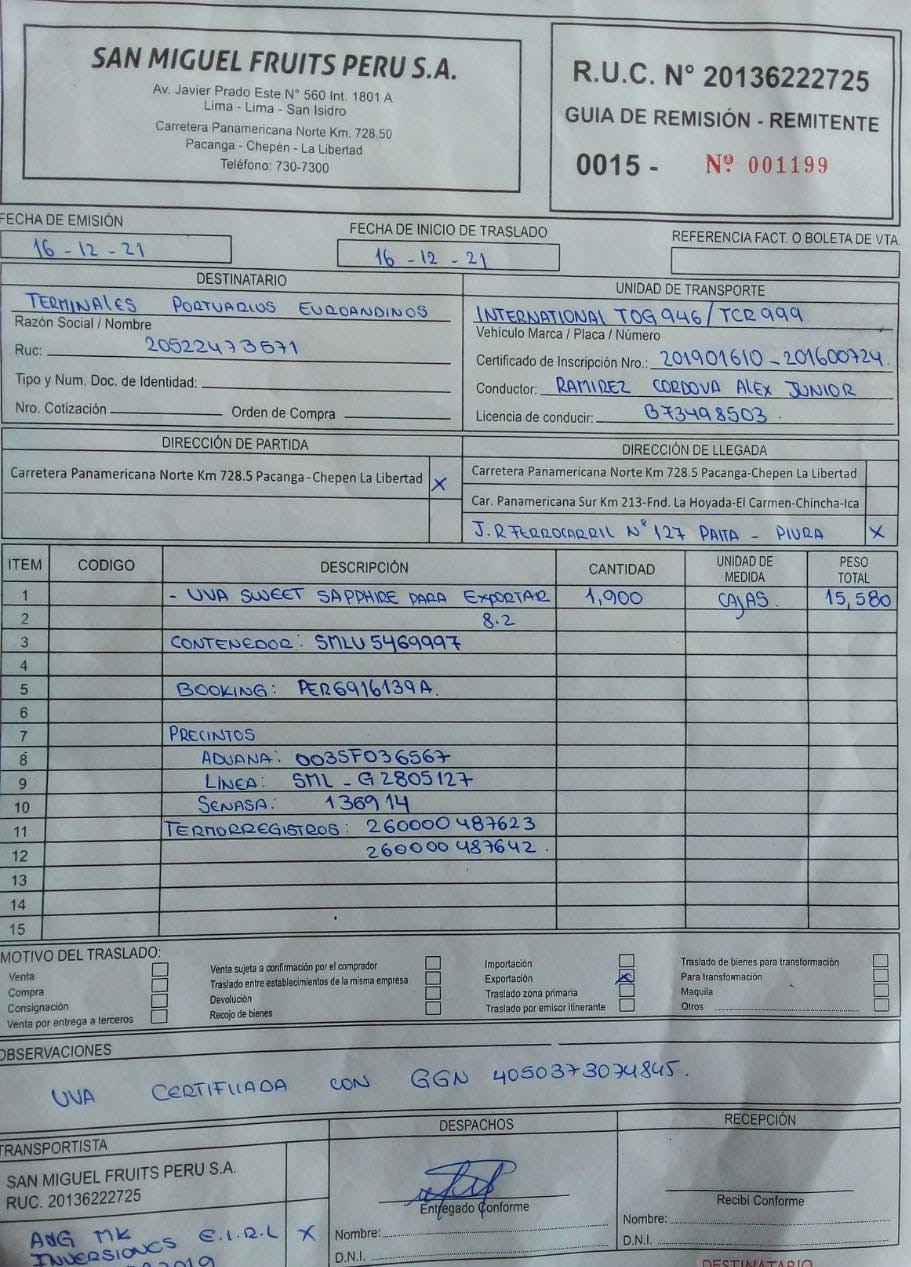 SAN MIGUEL FRUITS PERU S.A.
Av. Javier Prado Este N° 560 Int. 1801 A
Lima - Lima - San Isidro
Carretera Panamericana Norte Km. 728.50
Pacanga - Chepén - La Libertad
Teléfono: 730-7300
R.U.C. N° 20136222725
GUIA DE REMISIÓN - REMITENTE
0015 - Nº 001199
FECHA DE EMISIÓN
16 - 12 - 21
FECHA DE INICIO DE TRASLADO
16 - 12 - 21
REFERENCIA FACT. O BOLETA DE VTA.
DESTINATARIO
TERMINALES PORTUARIOS EUROANDINOS
Razón Social / Nombre
Ruc: 20522473571
Tipo y Num. Doc. de Identidad:
Nro. Cotización Orden de Compra
UNIDAD DE TRANSPORTE
INTERNATIONAL TOG946/TCR999
Vehículo Marca / Placa / Número
Certificado de Inscripción Nro.: 201901610 - 201600724.
Conductor: RAMIREZ CORDOVA ALEX JUNIOR
Licencia de conducir: B73498503.
DIRECCIÓN DE PARTIDA
Carretera Panamericana Norte Km 728.5 Pacanga-Chepen La Libertad X
DIRECCIÓN DE LLEGADA
Carretera Panamericana Norte Km 728.5 Pacanga-Chepen La Libertad
Car. Panamericana Sur Km 213-Fnd. La Hoyada-El Carmen-Chincha-Ica
J.R FERROCARRIL N° 127 PAITA - PIURA X
ITEM CODIGO DESCRIPCIÓN CANTIDAD UNIDAD DE MEDIDA PESO TOTAL
1 - UVA SWEET SAPPHIRE PARA EXPORTAR 1,900 CAJAS. 15,580
2 8.2
3 CONTENEDOR: SMLU 5469997
4
5 BOOKING: PER6916139A.
6
7 PRECINTOS
8 ADUANA: 0035F036567
9 LÍNEA: SML - G2805127
10 SENASA: 136914
11 TERMORREGISTROS: 260000487623
12 260000487642.
13
14
15
MOTIVO DEL TRASLADO:
Venta
Compra
Consignación
Venta por entrega a terceros
Venta sujeta a confirmación por el comprador
Traslado entre establecimientos de la misma empresa
Devolución
Recojo de bienes
Importación
Exportación X
Traslado zona primaria
Traslado por emisor itinerante
Traslado de bienes para transformación
Para transformación
Maquila
Otros
OBSERVACIONES
UVA CERTIFICADA CON GGN 4050373074845.
TRANSPORTISTA
SAN MIGUEL FRUITS PERU S.A.
RUC. 20136222725
ANG MK
INVERSIONES E.I.R.L X
DESPACHOS
Entregado Conforme
Nombre:
D.N.I.
RECEPCIÓN
Recibí Conforme
Nombre:
D.N.I.
DESTINATARIO